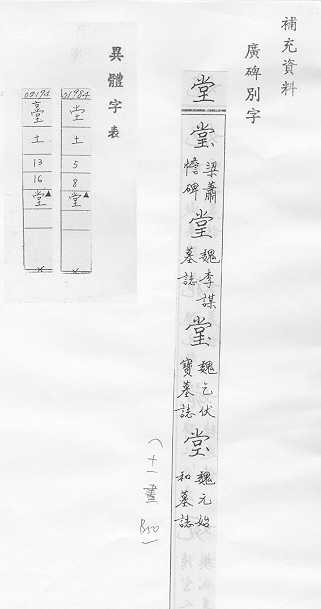 補充資料
廣碑別字
堂
堂
梁蕭
憺碑
堂
魏李謀
墓誌
堂
魏乞伏
寶墓誌
堂
魏元始
和墓誌
(十一畫 B50)
異體字表
01984
堂
土
5
8
堂▲
02194
土
13
16
堂▲